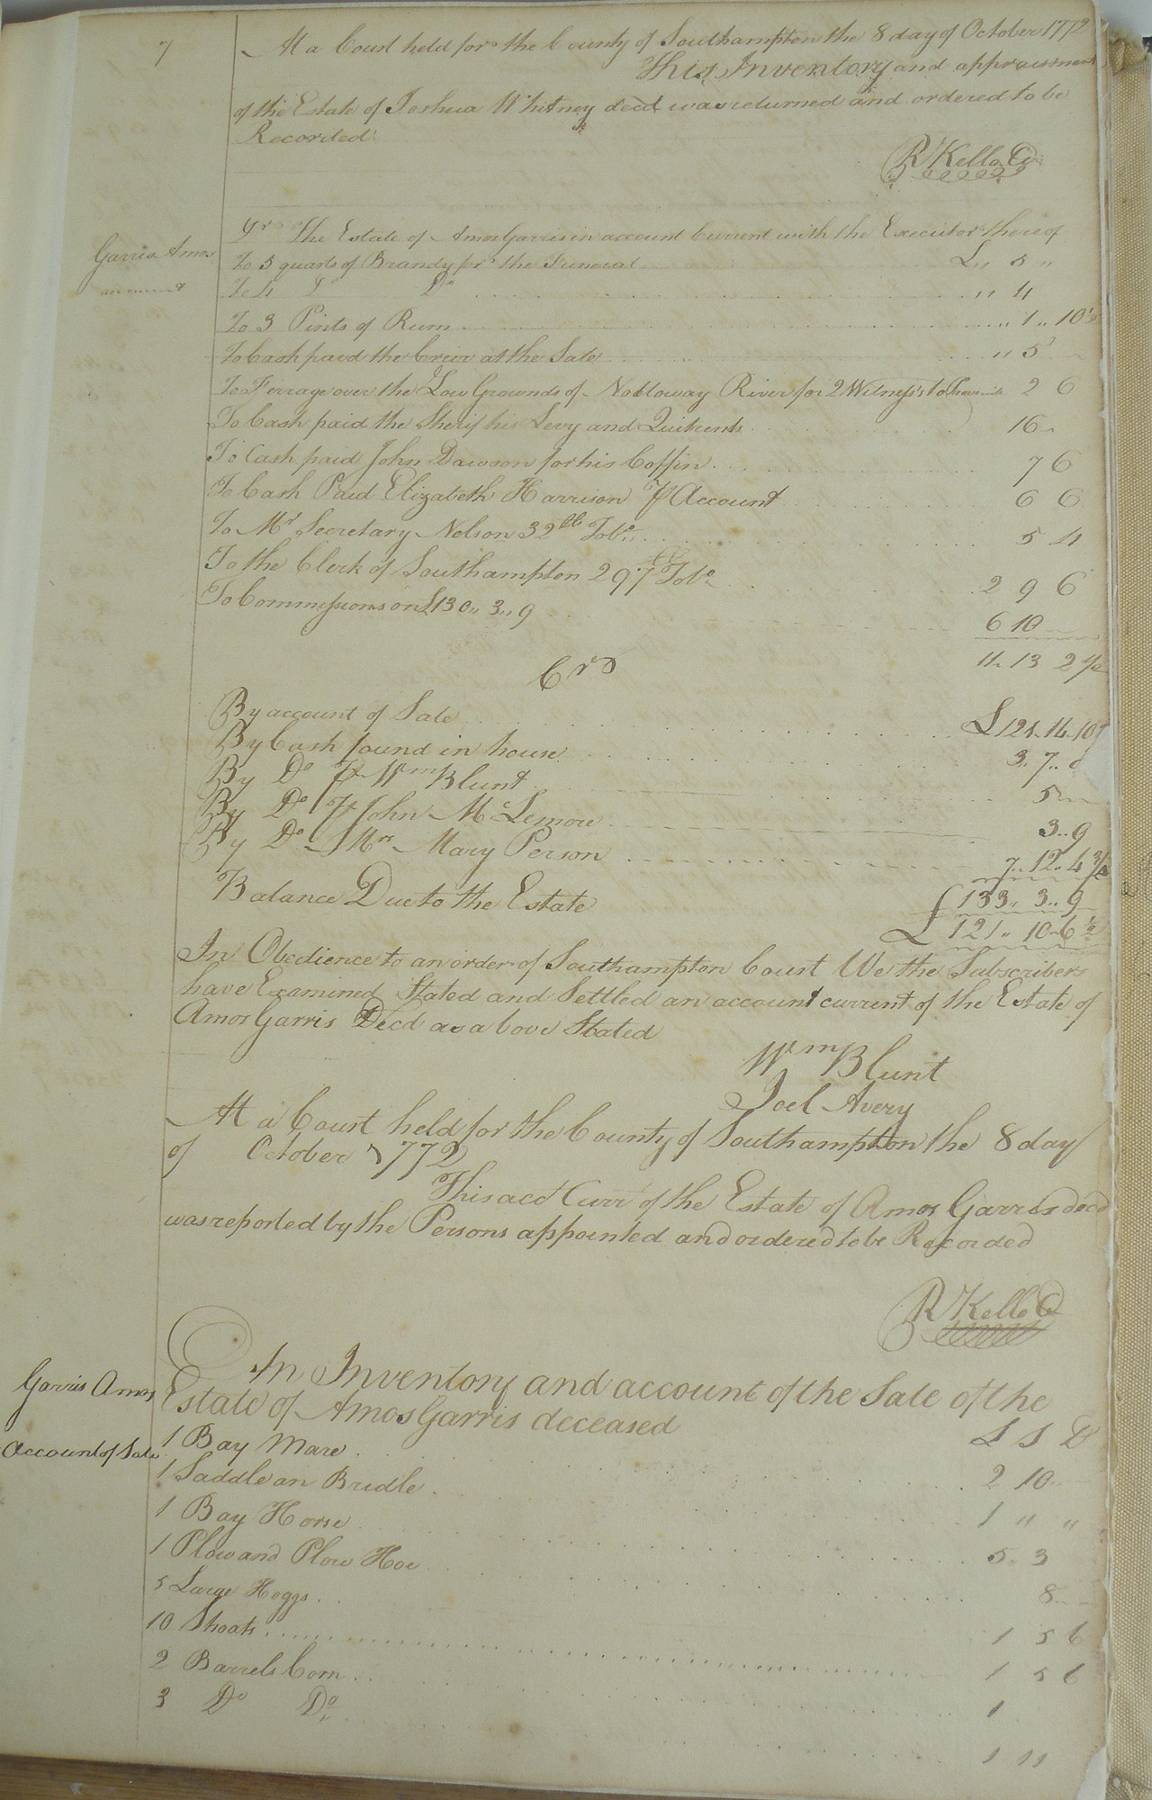 7
At a Court held for the County of Southampton the 8 day of October 1772
This Inventory and appraisment
of the Estate of Joshua Whitney decd was returned and ordered to be
Recorded
R Kello Cl
Garris Amos
account
Dr The Estate of Amos Garris in account Current with the Executor thereof
To 5 quarts of Brandy for the Funeral £ 〃 5 〃
To 4 Do Do 〃 4
To 3 Pints of Rum 〃 1 〃 10½
To Cash paid the Crier at the Sale 〃 5
To Ferrage over the Low Grounds of Nottoway River for 2 Witness's to 2 6
To Cash paid the Sherif his Levy and Quitrents 16
To Cash paid John Dawson for his Coffin 7 6
To Cash Paid Elizabeth Harrison ⅌ Account 6 6
To Mr Secretary Nelson 32 lb Tobo 5 4
To the Clerk of Southampton 297 lb Tobo 2 9 6
To Commissions on £130 〃 3 〃 9 6 10
11 13 2½
Crs
By account of Sale £121 14 10
By Cash found in house 3 7
By Do ⅌ Wm Blunt 5
By Do ⅌ John McLemore 3 9
By Do Mrs Mary Person 7 12 4¾
£133 3 9
Balance Due to the Estate £121 10 6½
In Obedience to an order of Southampton Court We the Subscribers
have Examined Stated and Settled an account current of the Estate of
Amos Garris Decd as above Stated
Wm Blunt
Joel Avery
At a Court held for the County of Southampton the 8 day
of October 1772
This acct Curr of the Estate of Amos Garris decd
was reported by the Persons appointed and ordered to be Recorded
R Kello Cl
Garris Amos
Account of Sale
An Inventory and account of the Sale of the
Estate of Amos Garris deceased £ S D
1 Bay Mare 2 10
1 Saddle an Bridle 1 〃 〃
1 Bay Horse 5 3
1 Plow and Plow Hoe 8
5 Large Hoggs 1 5 6
10 Shoats 1 5 6
2 Barrels Corn 1
3 Do Do 1 11